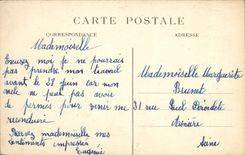 CARTE POSTALE
CORRESPONDANCE
ADRESSE
Mademoiselle
Excusez moi je ne pourrais
pas prendre mon travail
avant le 28 juin car mon
ne peut pas avoir
de permis pour venir me
reconduire
Recevez mademoiselle mes
sentiments empressés
Eugénie
Mademoiselle Marguerite
Brunet
31 rue Paul Déroulède
Asnière
Seine